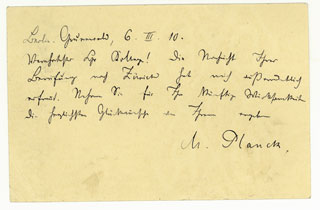 Berlin-Grunewald, 6. III. 10.
Verehrter Hr Kollege! Die Nachricht Ihrer
Berufung nach Zürich hat mich außerordentlich
erfreut. Nehmen Sie für Ihre künftige Wirksamkeit
die herzlichsten Glückwünsche von Ihrem ergeb.
M. Planck.